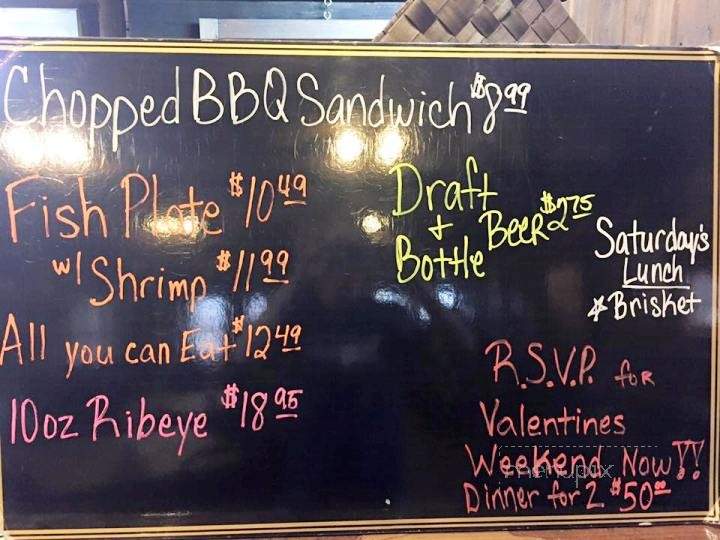 Chopped BBQ Sandwich $8.99
Fish Plate $10.49
w/ Shrimp $11.99
All you can Eat $12.49
10oz Ribeye $18.95
Draft
+
Bottle
Beer $2.75
Saturday's
Lunch
* Brisket
R.S.V.P. for
Valentines
Weekend Now!!
Dinner for 2 $50.00
menupix